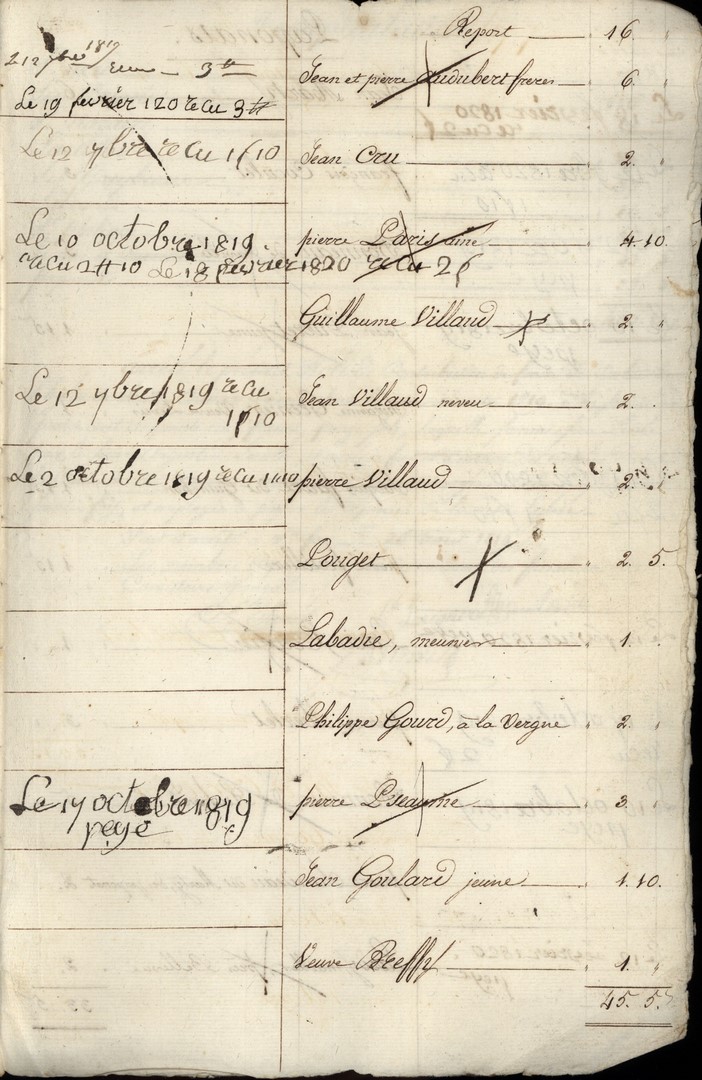 Report 16.
Jean et pierre Audubert freres 6.
2 12 7bre 1819
3 ₶
Le 19 février 120 recu 3 ₶
Le 12 ybre recu 1 ₶ 10
Jean Cru 2.
Le 10 octobre 1819.
pierre Paris aine 4. 10.
recu 2 ₶ 10 Le 18 février 1820 recu 2 ₶
Guillaume Villaud 2.
Le 12 ybre 1819 recu
1 ₶ 10
Jean Villaud neveu 2.
Le 2 octobre 1819 recu 1 ₶ 10
pierre Villaud 2.
Pouget 2. 5.
Labadie, meunier 1.
Philippe Gourd, à la Vergne 2.
Le 17 octobre 1819
peyé
pierre Pseaume 3.
Jean Goulard jeune 1. 10.
Veuve Breffy 1.
45. 5.